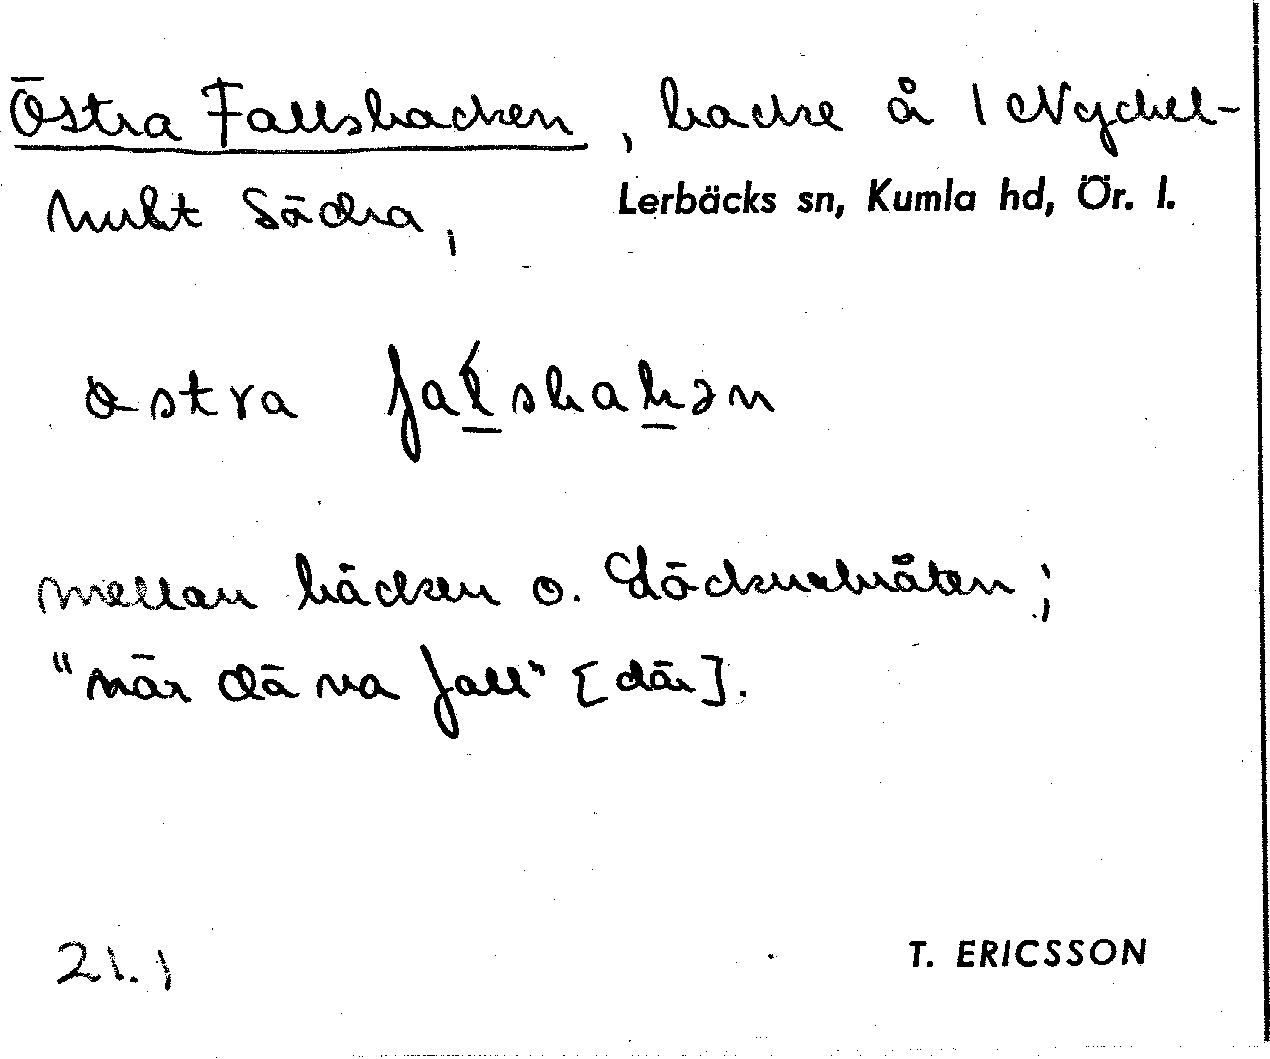 Östra Fallsbacken, backe å 1 Nyckel-
hult Södra,
Lerbäcks sn, Kumla hd, Ör. l.
östra falsbakən
mellan bäcken o.
"när dä va fall" [där].
21.1
T. ERICSSON